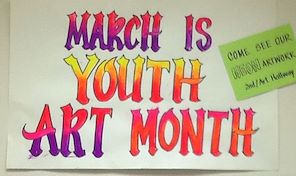 MARCH IS
YOUTH
ART MONTH
COME SEE OUR
ARTWORK
2nd/Art Hallway